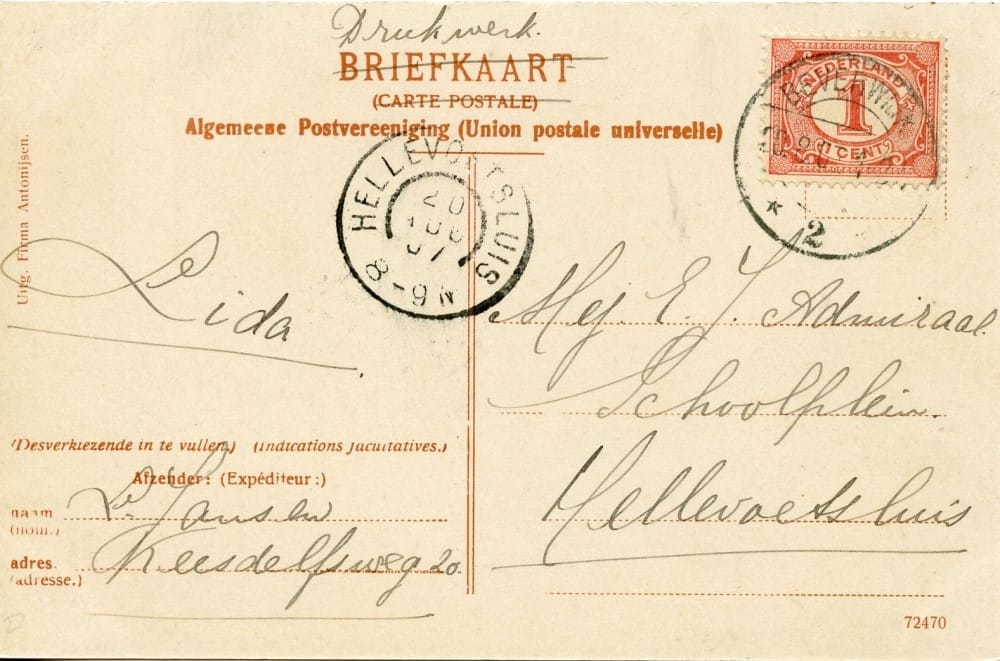 Drukwerk.
BRIEFKAART
(CARTE POSTALE)
Algemeene Postvereeniging (Union postale universelle)
NEDERLAND
1
CENT
BEVERWIJK
2
HELLEVOETSLUIS
20
AUG
07
8-9 N
Uitg. Firma Antonijsen.
Lida
Mej. E. J. Admiraal.
Schoolplein.
Hellevoetshuis
(Desverkiezende in te vullen.) (Indications facultatives.)
Afzender: (Expéditeur:)
naam
(nom.)
Jansen
adres.
(adresse.)
Keesdelfsweg 20.
72470